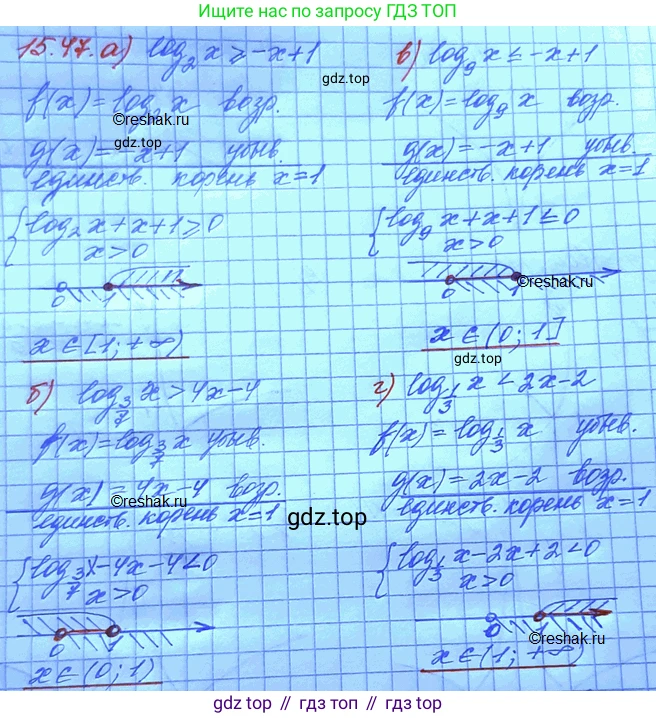 Ищите нас по запросу ГДЗ ТОП
15.47. а) log₂ x ≥ -x+1
f(x) = log₂ x возр.
©reshak.ru
gdz.top
g(x) = -x+1 убыв.
единств. корень x=1
{ log₂ x + x + 1 ≥ 0
x > 0
0 1
x ∈ [1; +∞)
в) log₉ x ≤ -x+1
f(x) = log₉ x возр.
g(x) = -x+1 убыв.
единств. корень x=1
{ log₉ x + x + 1 ≤ 0
x > 0
0 1
©reshak.ru
x ∈ (0; 1]
gdz.top
б) log_3/7 x > 4x-4
f(x) = log_3/7 x убыв.
g(x) = 4x-4 возр.
©reshak.ru
единств. корень x=1
gdz.top
{ log_3/7 x - 4x - 4 < 0
x > 0
0 1
x ∈ (0; 1)
г) log_1/3 x < 2x-2
f(x) = log_1/3 x убыв.
g(x) = 2x-2 возр.
единств. корень x=1
{ log_1/3 x - 2x + 2 < 0
x > 0
0 1
©reshak.ru
x ∈ (1; +∞)
gdz.top // гдз топ // gdz.top // гдз топ